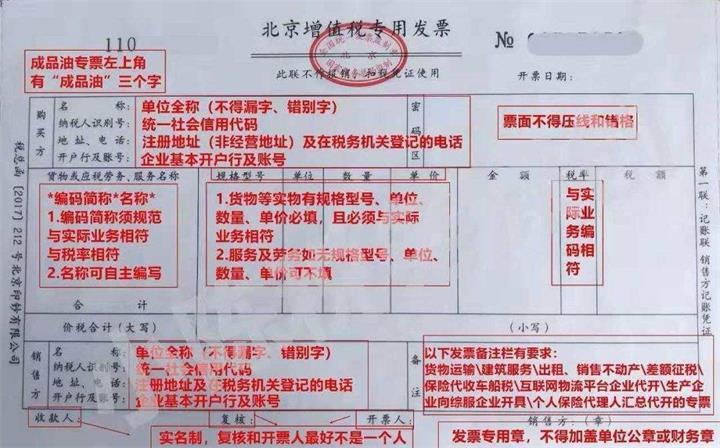 北京增值税专用发票
110
№
成品油专票左上角
有“成品油”三个字
此联不作报销、扣税凭证使用
开票日期:
购买方
名称:
单位全称（不得漏字、错别字）
纳税人识别号:
统一社会信用代码
地址、电话:
注册地址（非经营地址）及在税务机关登记的电话
开户行及账号:
企业基本开户行及账号
密码区
票面不得压线和错格
货物或应税劳务、服务名称
规格型号
单位
数量
单价
金额
税率
税额
*编码简称*名称*
1.编码简称须规范
与实际业务相符
与税率相符
2.名称可自主编写
1.货物等实物有规格型号、单位、
数量、单价必填，且必须与实际
业务相符
2.服务及劳务如无规格型号、单位、
数量、单价可不填
与实际业务编码相符
合计
价税合计（大写）
（小写）
销售方
名称:
单位全称（不得漏字、错别字）
纳税人识别号:
统一社会信用代码
地址、电话:
注册地址及在税务机关登记的电话
开户行及账号:
企业基本开户行及账号
备注
以下发票备注栏有要求:
货物运输\建筑服务\出租、销售不动产\差额征税\
保险代收车船税\互联网物流平台企业代开\生产企
业向综服企业开具\个人保险代理人汇总代开的专票
收款人:
复核:
开票人:
销售方:（章）
实名制，复核和开票人最好不是一个人
发票专用章，不得加盖单位公章或财务章
税总函〔2017〕212号北京印钞有限公司
第一联：记账联 销售方记账凭证